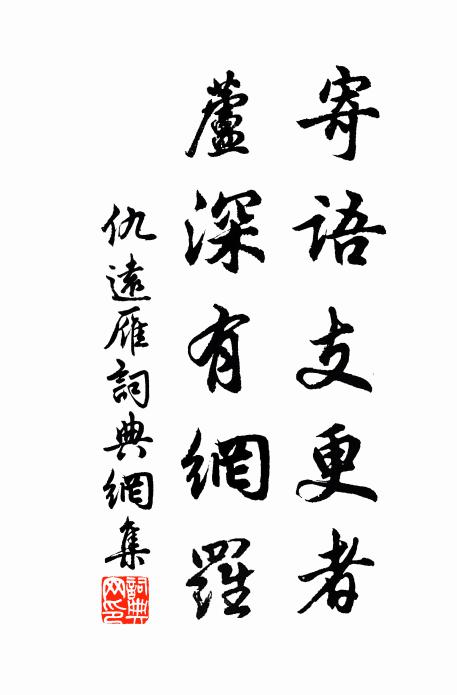 寄語支更者
蘆深有網羅
仇遠雁詞典網集
詞典網印